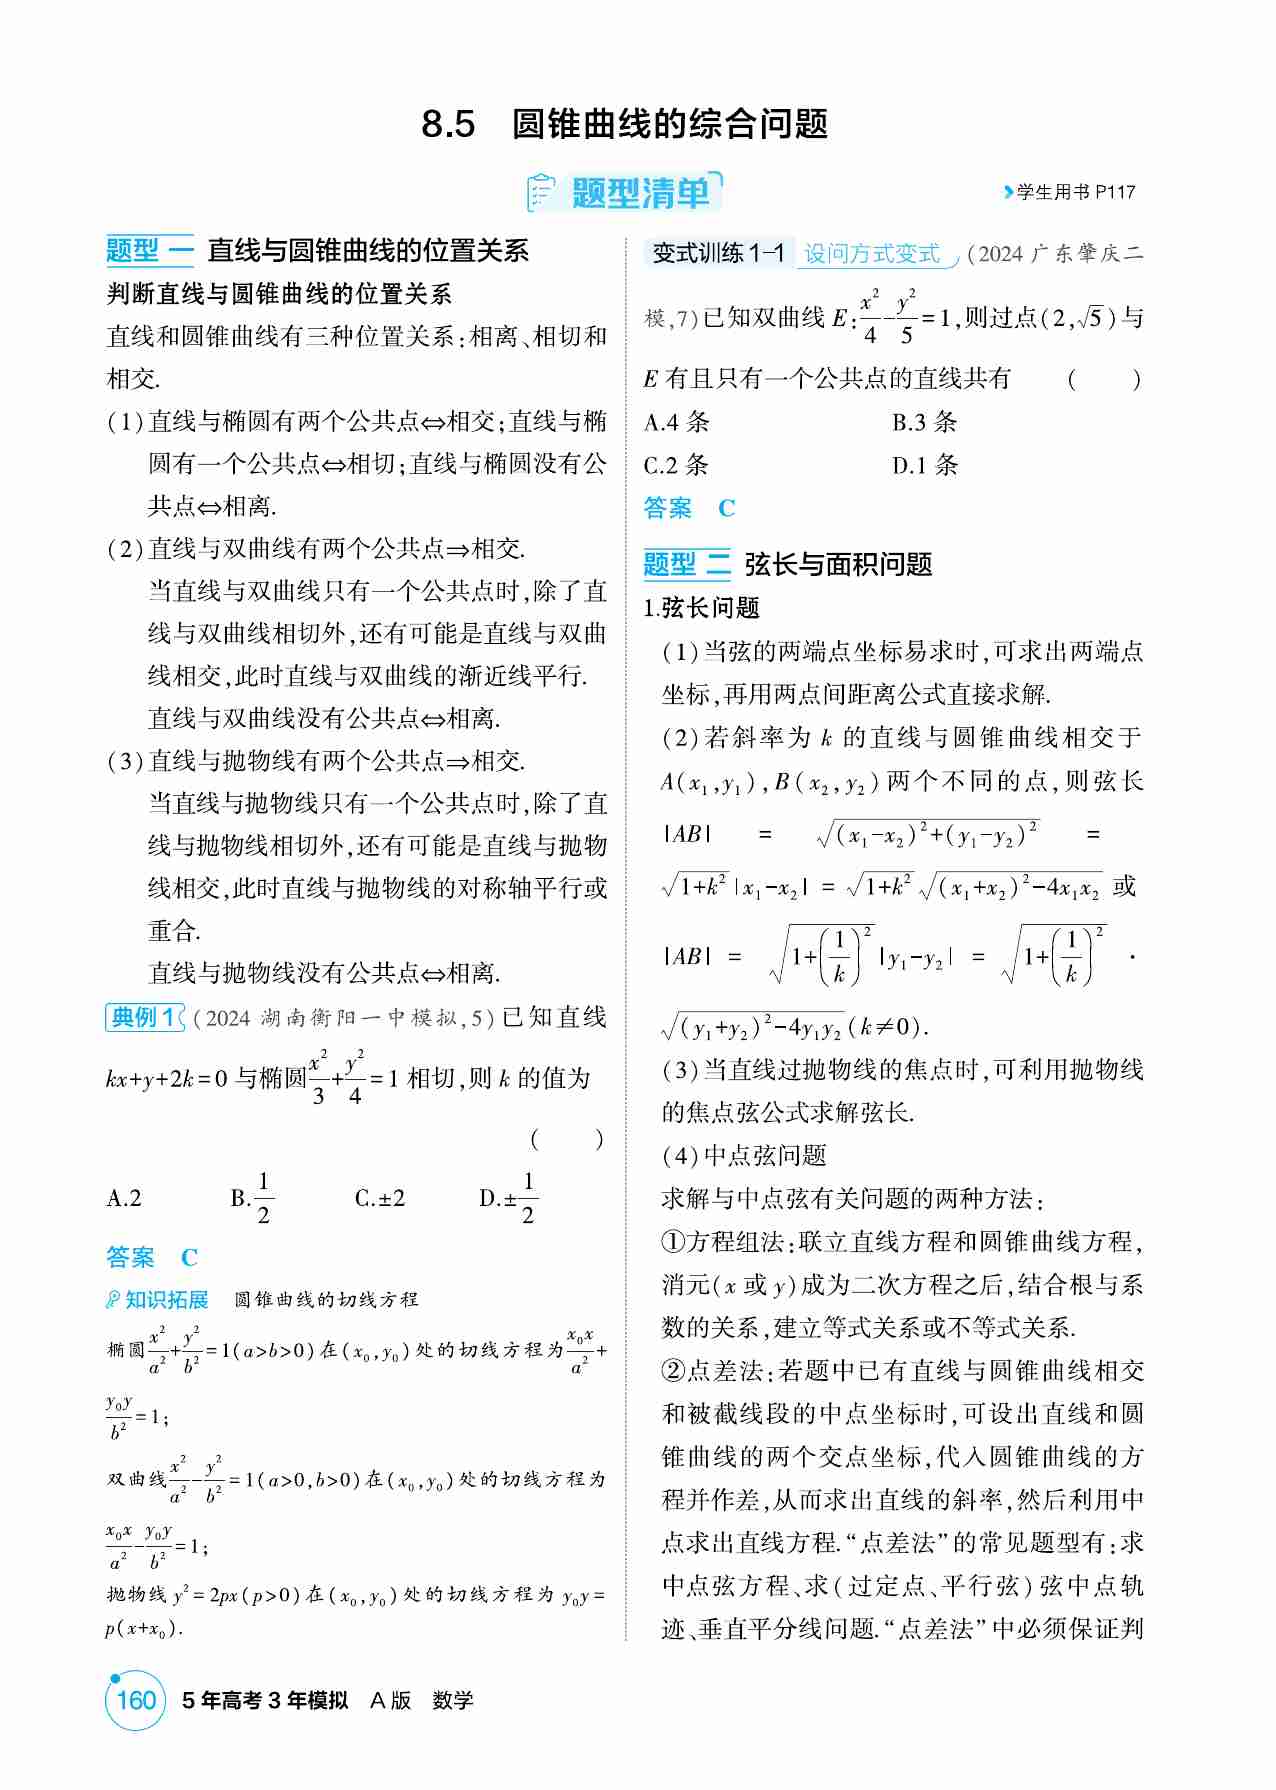 8.5 圆锥曲线的综合问题
题型清单
学生用书 P117
题型 一 直线与圆锥曲线的位置关系
判断直线与圆锥曲线的位置关系
直线和圆锥曲线有三种位置关系:相离、相切和
相交.
(1)直线与椭圆有两个公共点⇔相交;直线与椭
圆有一个公共点⇔相切;直线与椭圆没有公
共点⇔相离.
(2)直线与双曲线有两个公共点⇒相交.
当直线与双曲线只有一个公共点时,除了直
线与双曲线相切外,还有可能是直线与双曲
线相交,此时直线与双曲线的渐近线平行.
直线与双曲线没有公共点⇔相离.
(3)直线与抛物线有两个公共点⇒相交.
当直线与抛物线只有一个公共点时,除了直
线与抛物线相切外,还有可能是直线与抛物
线相交,此时直线与抛物线的对称轴平行或
重合.
直线与抛物线没有公共点⇔相离.
典例 1 (2024 湖南衡阳一中模拟,5)已知直线
kx+y+2k=0 与椭圆x²/3+y²/4=1 相切,则 k 的值为
( )
A.2 B.1/2 C.±2 D.±1/2
答案 C
知识拓展 圆锥曲线的切线方程
椭圆x²/a²+y²/b²=1(a>b>0)在(x₀,y₀)处的切线方程为x₀x/a²+
y₀y/b²=1;
双曲线x²/a²-y²/b²=1(a>0,b>0)在(x₀,y₀)处的切线方程为
x₀x/a²-y₀y/b²=1;
抛物线 y²=2px(p>0)在(x₀,y₀)处的切线方程为 y₀y=
p(x+x₀).
变式训练 1-1 设问方式变式 (2024 广东肇庆二
模,7)已知双曲线 E:x²/4-y²/5=1,则过点(2,√5)与
E 有且只有一个公共点的直线共有 ( )
A.4 条 B.3 条
C.2 条 D.1 条
答案 C
题型 二 弦长与面积问题
1.弦长问题
(1)当弦的两端点坐标易求时,可求出两端点
坐标,再用两点间距离公式直接求解.
(2)若斜率为 k 的直线与圆锥曲线相交于
A(x₁,y₁),B(x₂,y₂)两个不同的点,则弦长
|AB| = √((x₁-x₂)²+(y₁-y₂)²) =
√(1+k²)|x₁-x₂| = √(1+k²)√((x₁+x₂)²-4x₁x₂) 或
|AB| = √(1+(1/k)²)|y₁-y₂| = √(1+(1/k)²) ·
√((y₁+y₂)²-4y₁y₂)(k≠0).
(3)当直线过抛物线的焦点时,可利用抛物线
的焦点弦公式求解弦长.
(4)中点弦问题
求解与中点弦有关问题的两种方法:
①方程组法:联立直线方程和圆锥曲线方程,
消元(x 或 y)成为二次方程之后,结合根与系
数的关系,建立等式关系或不等式关系.
②点差法:若题中已有直线与圆锥曲线相交
和被截线段的中点坐标时,可设出直线和圆
锥曲线的两个交点坐标,代入圆锥曲线的方
程并作差,从而求出直线的斜率,然后利用中
点求出直线方程.“点差法”的常见题型有:求
中点弦方程、求(过定点、平行弦)弦中点轨
迹、垂直平分线问题.“点差法”中必须保证判
160 5 年高考 3 年模拟 A 版 数学